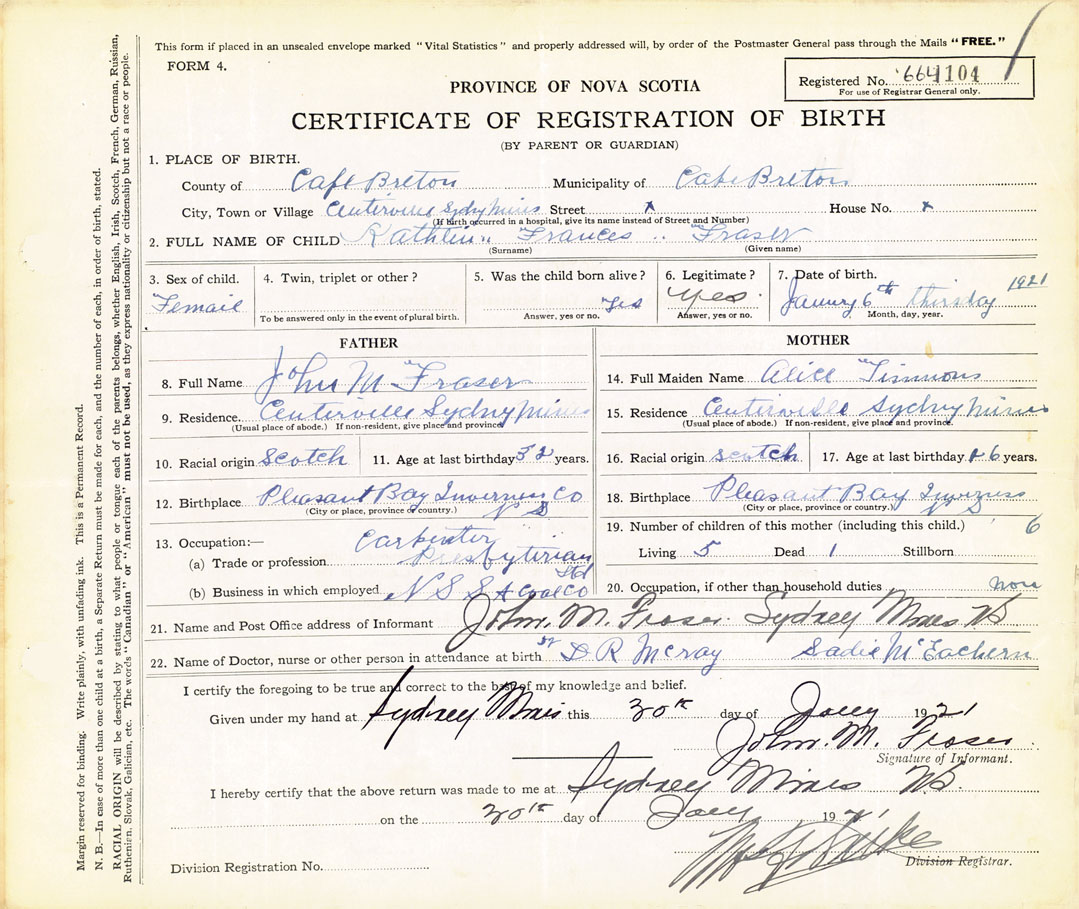 This form if placed in an unsealed envelope marked "Vital Statistics" and properly addressed will, by order of the Postmaster General pass through the Mails "FREE."
FORM 4.
Registered No. 664104
For use of Registrar General only.
PROVINCE OF NOVA SCOTIA
CERTIFICATE OF REGISTRATION OF BIRTH
(BY PARENT OR GUARDIAN)
1. PLACE OF BIRTH.
County of Cape Breton Municipality of Cape Breton
City, Town or Village Centerville Sydny Mines Street x House No. x
(If birth occurred in a hospital, give its name instead of Street and Number)
2. FULL NAME OF CHILD Kathleen " Frances " " Fraser
(Surname) (Given name)
3. Sex of child. Femail
4. Twin, triplet or other?
To be answered only in the event of plural birth.
5. Was the child born alive? Yes
Answer, yes or no.
6. Legitimate? Yes.
Answer, yes or no.
7. Date of birth. 1921
January 6th thirsday
Month, day, year.
FATHER
8. Full Name John M " Fraser
9. Residence. Centerville Sydny Mines
(Usual place of abode.) If non-resident, give place and province
10. Racial origin Scotch 11. Age at last birthday 32 years.
12. Birthplace Pleasant Bay Inverness Co
N S
(City or place, province or country.)
13. Occupation:—
Carpenter
(a) Trade or profession. Presbyterian
Ltd
(b) Business in which employed N S S & Coal Co
MOTHER
14. Full Maiden Name Alice " Timmons
15. Residence Centerville Sydny Mines
(Usual place of abode.) If non-resident, give place and province.
16. Racial origin scotch 17. Age at last birthday 6 years.
18. Birthplace Pleasant Bay Inverness
N S
(City or place, province or country.)
19. Number of children of this mother (including this child.) 6
Living 5 Dead 1 Stillborn
20. Occupation, if other than household duties non
21. Name and Post Office address of Informant John. M. Fraser. Sydney Mines NS
22. Name of Doctor, nurse or other person in attendance at birth Dr D. R McRay Sadie McEachern
I certify the foregoing to be true and correct to the best of my knowledge and belief.
Given under my hand at Sydney Mines this 30th day of Jany 1921
John. M. Fraser
Signature of Informant.
I hereby certify that the above return was made to me at Sydney Mines NS.
on the 30th day of Jany 1921
Division Registration No.
Division Registrar.
Margin reserved for binding. Write plainly, with unfading ink. This is a Permanent Record.
N. B.—In case of more than one child at a birth, a Separate Return must be made for each, and the number of each, in order of birth, stated.
RACIAL ORIGIN will be described by stating to what people or tongue each of the parents belongs, whether English, Irish, Scotch, French, German, Russian,
Ruthenian, Slovak, Galician, etc. The words "Canadian" or "American" must not be used, as they express nationality or citizenship but not a race or people.